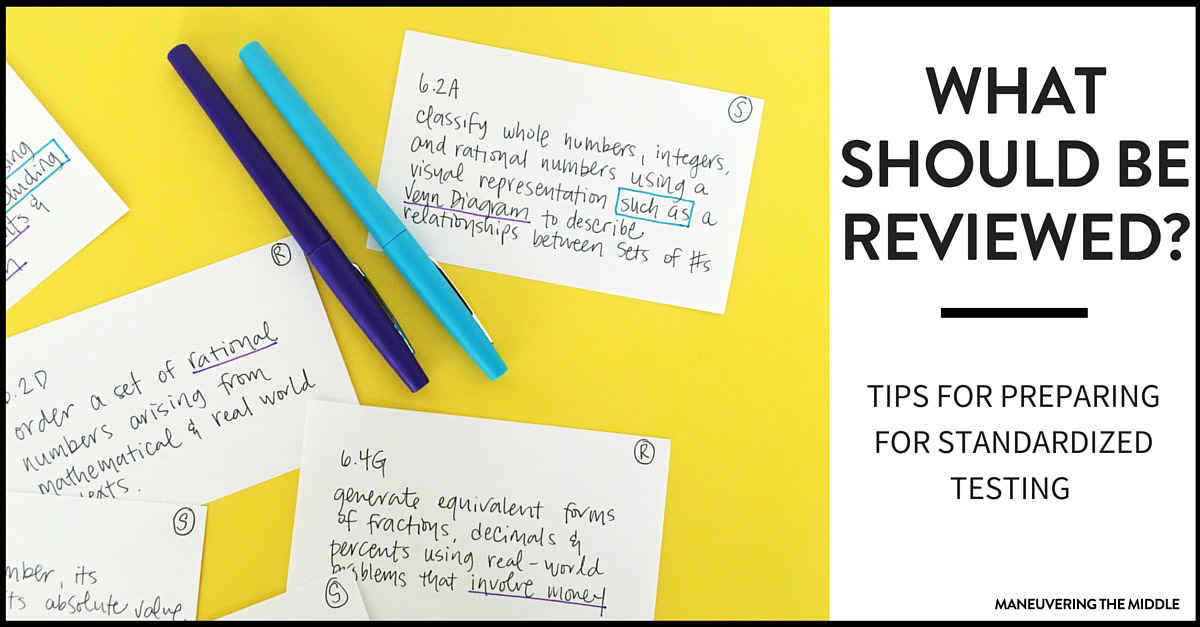 6.2A
S
classify whole numbers, integers,
and rational numbers using a
visual representation such as a
Venn Diagram to describe
relationships between sets of #s
cluding
&
R
.2D
order a set of rational
numbers arising from
mathematical & real world
R
6.4G
generate equivalent forms
of fractions, decimals &
percents using real-world
problems that involve money
S
its
absolute value
S
WHAT
SHOULD BE
REVIEWED?
TIPS FOR PREPARING
FOR STANDARDIZED
TESTING
MANEUVERING THE MIDDLE